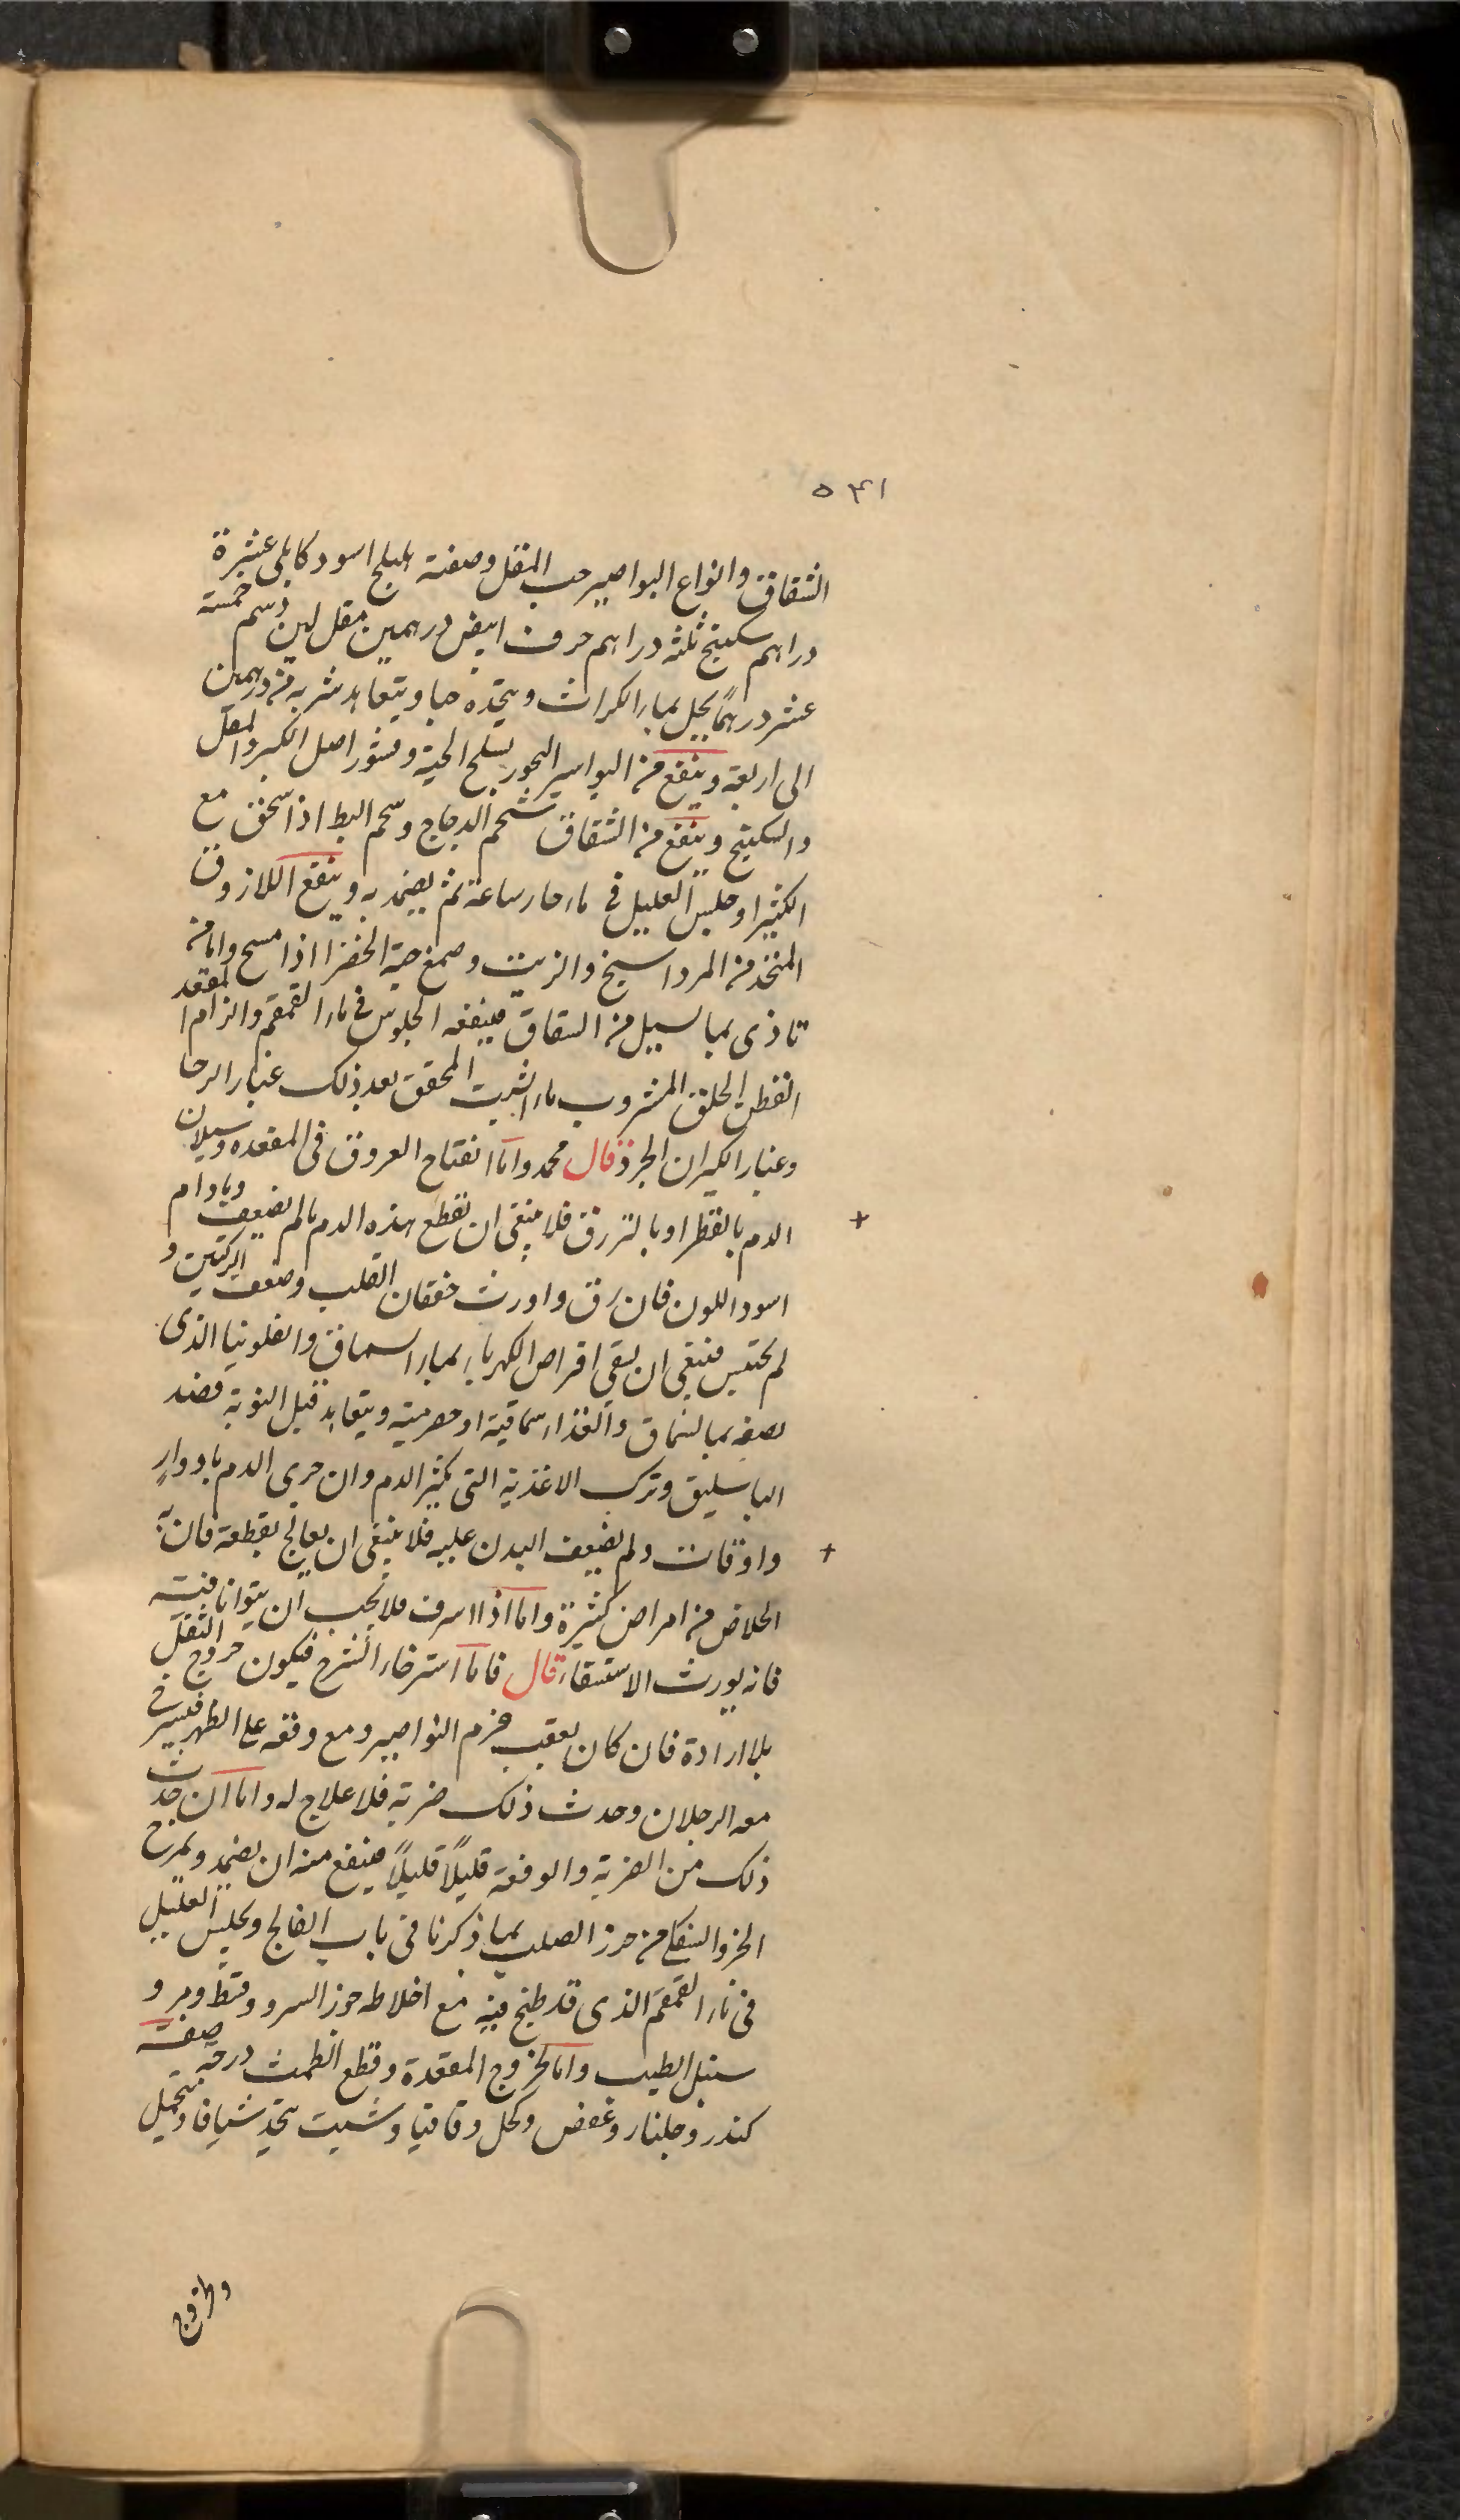 ٥٣١
الشقاق وانواع البواصير حب المقل وصفته اهليلج اسود كابلي عشرة
دراهم سكبينج ثلثه دراهم حرف ابيض درهمين مقل لين دسم خمسة
عشر درهمًا يحل بماء الكراث ويتخذه حبا ويتعاهد شربه من درهمين
الى اربعة وينفع من البواسير البخور بسلخ الحية وقشور اصل الكبر والمقل
والسكبينج وينفع من الشقاق شحم الدجاج وشحم البط اذا سحق مع
الكثيرا وجلس العليل في ماء حار ساعة ثم يضمد به وينفع اللازوق
المتخذ من المرداسنج والزيت وصمغ حبة الخضرا اذا مسح واما من
تاذى بما يسيل من الشقاق فينفعه الجلوس في ماء القمقم والزام المقعد
القطن الخلق المشروب ماء الشبت المحقق بعد ذلك غبار الرحا
وغبار الكيزان الجرذ قال محمد واما انفتاح العروق في المقعده وسيلان
الدم بالقطر او بالتزرق فلا ينبغي ان نقطع هذه الدم ما لم يضعف ومادام
اسود اللون فان رق واورث خفقان القلب وضعف الركبتين و
لم يحتبس فينبغي ان يسقي اقراص الكهرباء بماء السماق والفلونيا الذى
نصفه بماء السماق والغذاء سماقية او حصرمية ويتعاهد قبل النوبة فصد
الباسليق وترك الاغذية التى تكثر الدم وان جرى الدم بادوارٍ
واوقات ولم يضعف البدن عليه فلا ينبغي ان يعالج بقطعة فان به
الخلاص من امراض كثيرة واما اذا اسرف فلا يجب ان يتوانا فيه
فانه يورث الاستسقاء قال فاما استرخاء الشرج فيكون خروج الثفل
بلا ارادة فان كان بعقب خزم النواصير ومع وقعه على الظهر فيسترخي
معه الرجلان وحدث ذلك ضربة فلا علاج له واما ان حدث
ذلك من الضربة والوقعة قليلًا قليلًا فينفع منه ان يضمد ويمرخ
الخرز السفلي من خرز الصلب بما ذكرنا في باب الفالج ويجلس العليل
في ماء القمقم الذى قد طبخ فيه مع اخلاطه جوز السرو وقسط ومر و
سنبل الطيب واما لخروج المقعدة وقطع الطمث درجه صفته
كندر وجلنار وعفص وكحل وقاقيا وشبت يتخذ شيافا ويتحمل
ولخروج